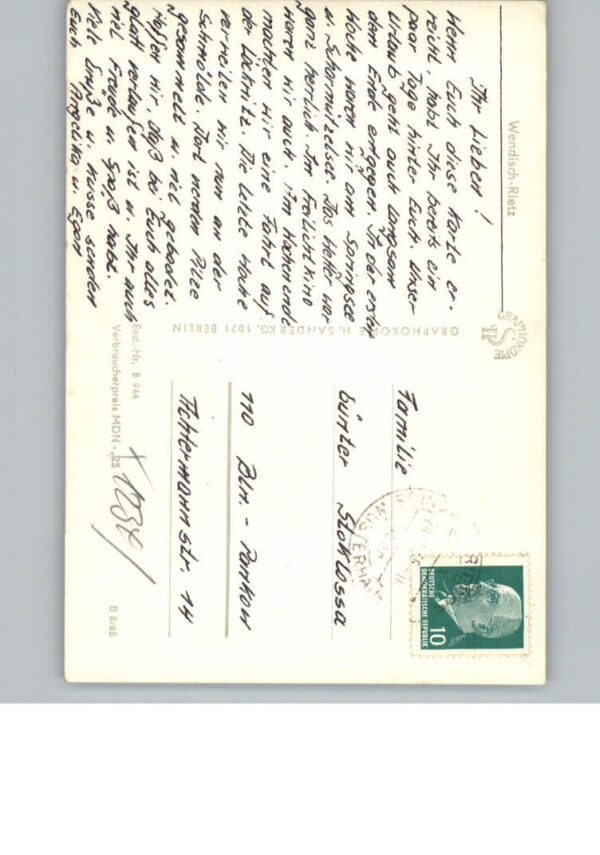 Wendisch-Rietz
Ihr Lieben!
Wenn Euch diese Karte er-
reicht, habt Ihr bereits ein
paar Tage hinter Euch. Unser
Urlaub geht auch langsam
dem Ende entgegen. In der ersten
Woche waren wir am Springsee
u. Scharmützelsee. Das Wetter war
ganz herrlich. Im Freilichtkino
waren wir auch. Am Wochenende
machten wir eine Fahrt auf
der Löcknitz. Die letzte Woche
verweilen wir nun an der
Schmölde. Dort werden Pilze
gesammelt u. viel gebadet.
Hoffen wir, daß bei Euch alles
glatt verlaufen ist u. Ihr auch
viel Freude u. Spaß habt.
Viele Grüße u. Küsse senden
Euch Angelika u. Egon
GRAPHOKOPIE
GRAPHOKOPIE H. SANDER KG, 1071 BERLIN
Best.-Nr. B 944
Verbraucherpreis MDN -,25
B 8/65
DEUTSCHE
DEMOKRATISCHE REPUBLIK
10
Familie
Günter Stoklossa
110 Bln. - Pankow
Achtermannstr. 14